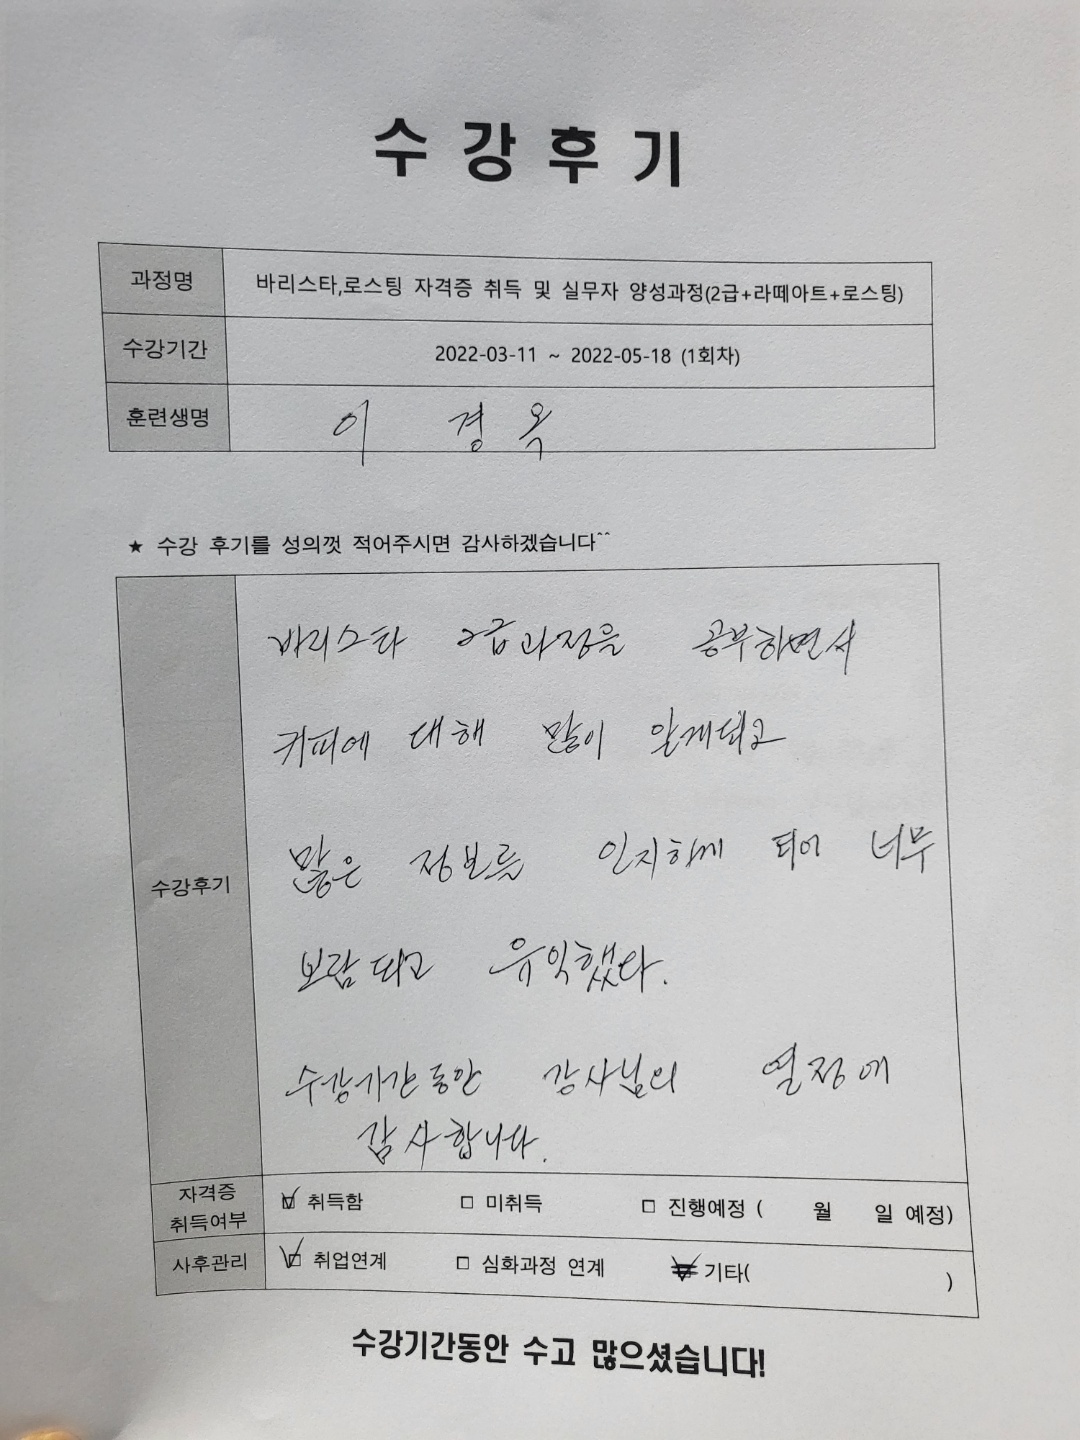 수강후기
과정명 바리스타,로스팅 자격증 취득 및 실무자 양성과정(2급+라떼아트+로스팅)
수강기간 2022-03-11 ~ 2022-05-18 (1회차)
훈련생명 이 경 옥
★ 수강 후기를 성의껏 적어주시면 감사하겠습니다^^
수강후기
바리스타 2급과정을 공부하면서
커피에 대해 많이 알게되고
많은 정보를 인지하게 되어 너무
보람되고 유익했다.
수강기간동안 강사님의 열정에
감사합니다.
자격증
취득여부
☑ 취득함 □ 미취득 □ 진행예정 ( 월 일 예정)
사후관리 ☑ 취업연계 □ 심화과정 연계 ☑ 기타( )
수강기간동안 수고 많으셨습니다!